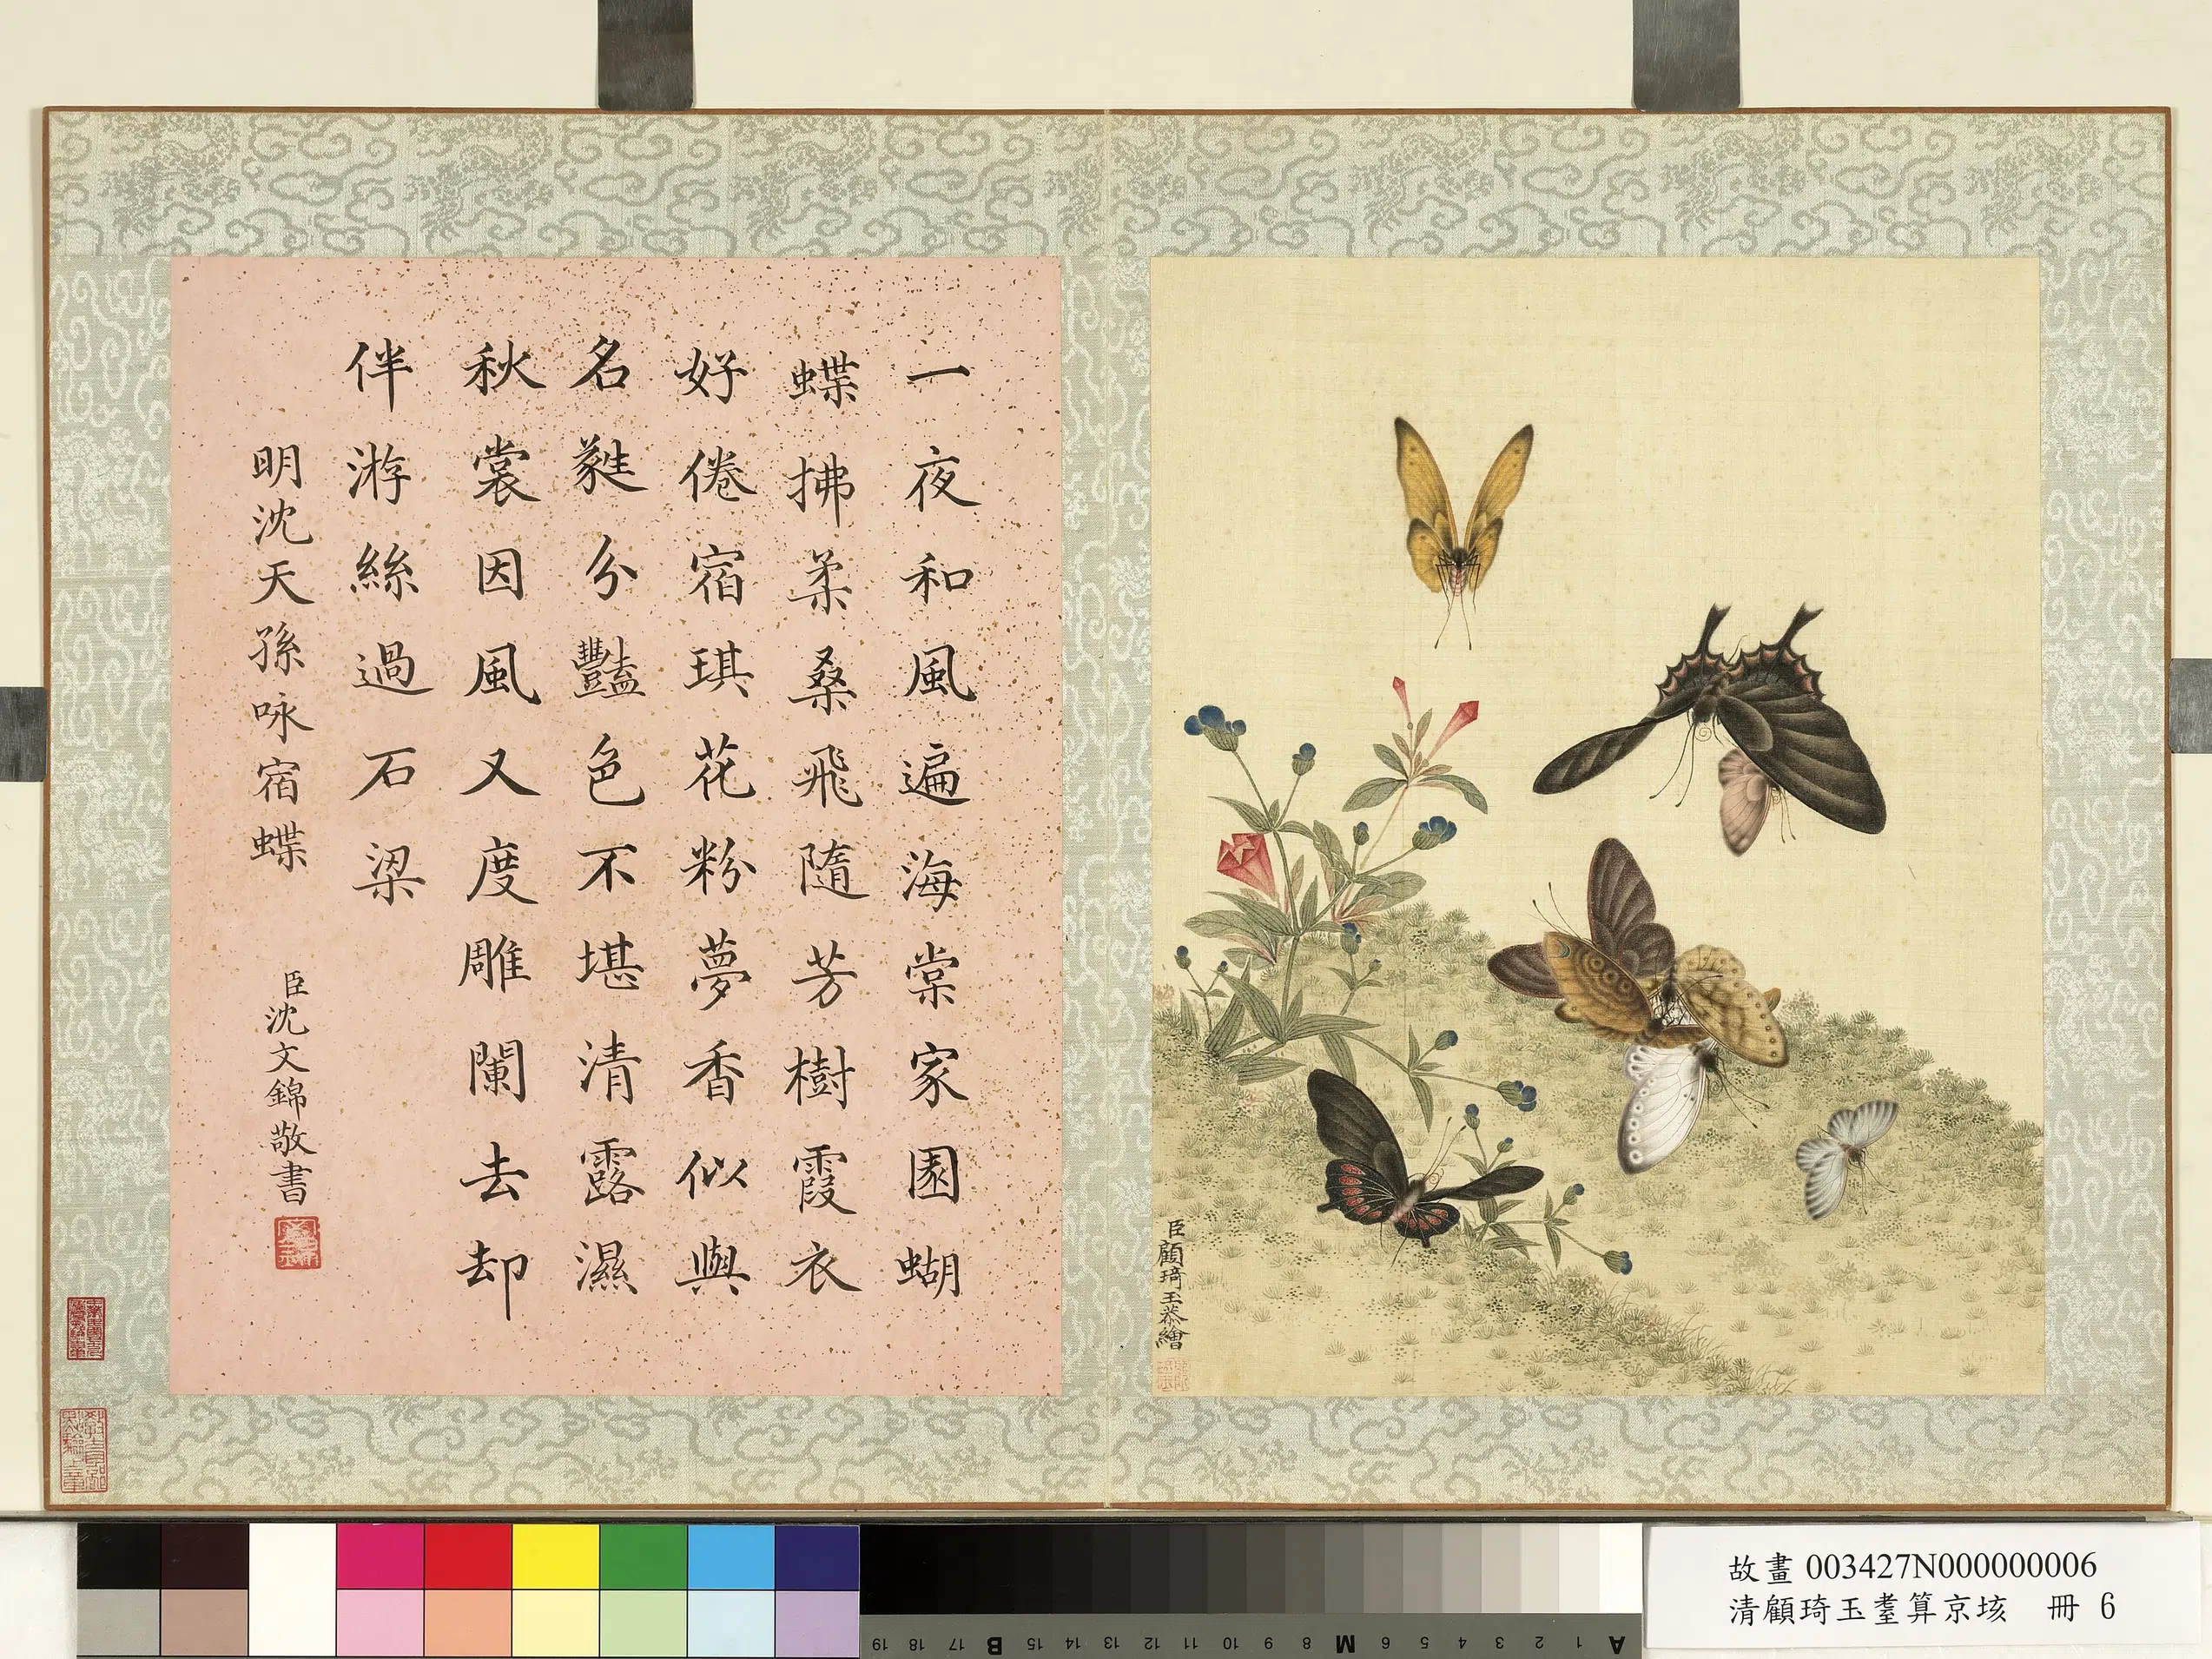 一夜和風遍海棠家園蝴
蝶拂柔桑飛隨芳樹霞衣
好倦宿琪花粉夢香似與
名蕤分豔色不堪清露濕
秋裳因風又度雕闌去却
伴游絲過石梁
明沈天孫咏宿蝶
臣沈文錦敬書
臣顧琦玉恭繪
故畫 003427N000000006
清顧琦玉耋算京垓 冊 6
A 1 2 3 4 5 6 M 8 9 10 11 12 13 14 15 B 17 18 19